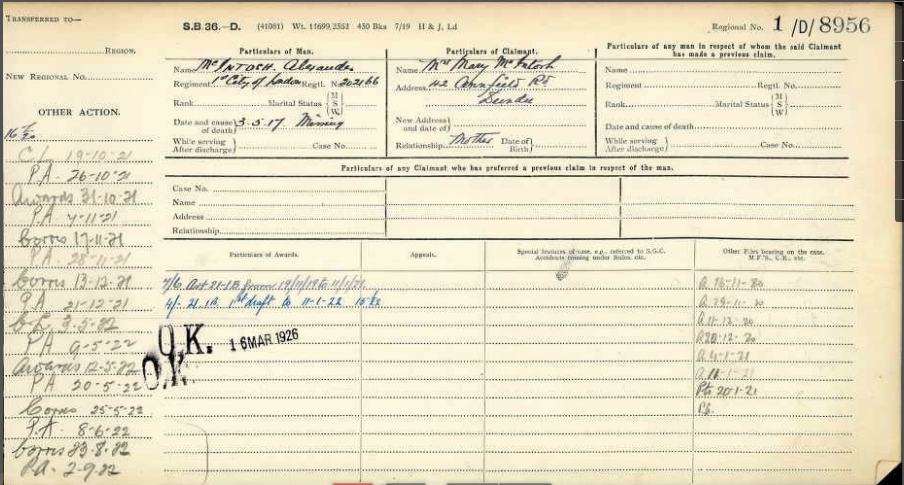 TRANSFERRED TO—
REGION.
NEW REGIONAL NO.
OTHER ACTION.
C.L. 19-10-21
P.A. 26-10-21
Awards 31-10-21
P.A. 4-11-21
Corres 17-11-21
P.A. 28-11-21
Corres 13-12-21
P.A. 21-12-21
3-5-22
P.A. 9-5-22
Awards 12-5-22
P.A. 20-5-22
Corres 25-5-22
P.A. 8-6-22
Corres 23-8-22
P.A. 2-9-22
S.B. 36.—D. (41081) Wt. 11699/2553 450 Bks 7/19 H & J, Ld
Regional No. 1/D/8956
Particulars of Man.
Name McINTOSH. Alexander
Regiment 1st City of London Regtl. No. 202166
Rank Marital Status { M S W }
Date and cause of death } 3.5.17 Missing
While serving After discharge } Case No.
Particulars of Claimant.
Name Mrs Mary McIntosh
Address 42 Annfield Rd
Dundee
New Address and date of }
Relationship Mother Date of Birth }
Particulars of any man in respect of whom the said Claimant has made a previous claim.
Name
Regiment Regtl. No.
Rank Marital Status { M S W }
Date and cause of death
While serving After discharge } Case No.
Particulars of any Claimant who has preferred a previous claim in respect of the man.
Case No.
Name
Address
Relationship
Particulars of Awards.
Appeals.
Special features of case, e.g., referred to S.G.C.
Accidents coming under Rules, etc.
Other Files bearing on the case.
M.F.'s, C.R., etc.
Art 21-1B from 19/11/19 to 11/1/21
4/- 21 1B 1st draft to 11-1-22
O.K. 16 MAR 1926
O.K.
A 16-11-20
A 29-11-20
A 11-12-20
A 20-12-20
A 4-1-21
A 11-1-21
20-1-21